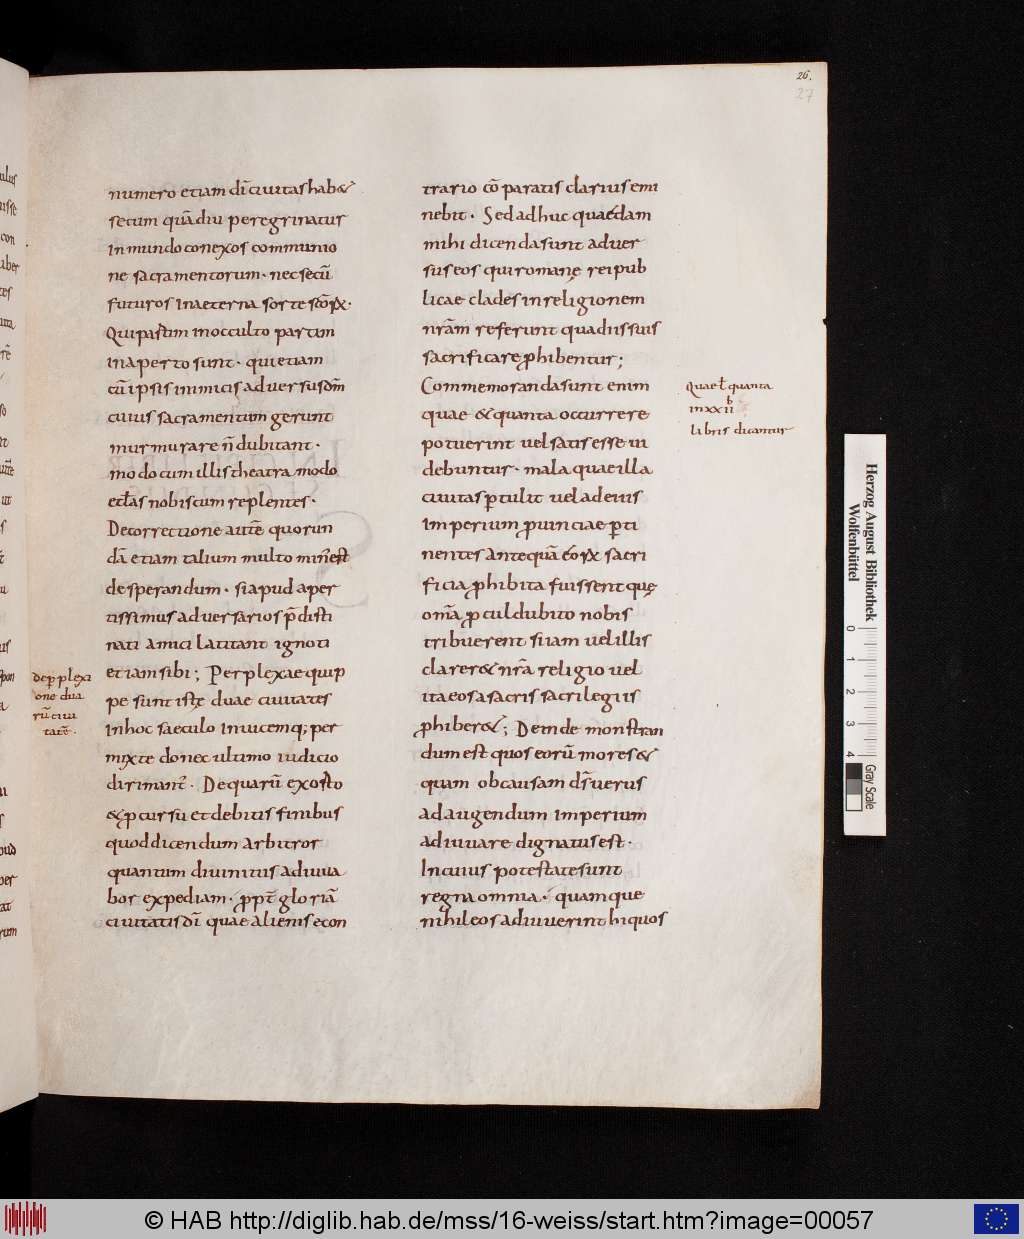 26.
27
numero etiam di̅ ciuitas hab&
secum qua̅diu peregrinatur
in mundo conexos communio
ne sacramentorum· nec secu̅
futuros in aeterna sorte sc̅oꝝ·
Qui partim in occulto partim
in aperto sunt· qui etiam
cu̅ ipsis inimicis aduersus dm̅
cuius sacramentum gerunt
murmurare n̅ dubitant·
modo cum illis theatra modo
eccl̅as nobiscum replentes·
De correctione aute̅ quorun
da̅ etiam talium multo min' est
desperandum· si apud aper
tissimus aduersarios p̅disti
nati amici latitant ignoti
etiam sibi; Perplexae quip
pe sunt istę duae ciuitates
in hoc saeculo inuicemq; per
mixte donec ultimo iudicio
dirimant'· De quaru̅ exorto
& ꝓcursu et debitis finibus
quod dicendum arbitror
quantum diuinitus adiuua
bor expediam· ꝓpt̅ gloria̅
ciuitatis di̅ quae alienis econ
de ꝑplexi
one dua
ru̅ ciui
tate̅·
trario co̅paratis clarius emi
nebit· Sed adhuc quaedam
mihi dicenda sunt aduer
sus eos qui romanę reipub
licae clades in religionem
nr̅am referunt qua diis suis
sacrificare ꝓhibentur;
Commemoranda sunt enim
quae & quanta occurrere
potuerint uel satis esse ui
debuntur· mala quae illa
ciuitas ꝑtulit uel ad eius
imperium ꝓuinciae ꝑti
nentes antequa̅ eoꝝ sacri
ficia ꝓhibita fuissent quę
om̅a ꝓcul dubito nobis
tribuerent si iam uel illis
clarer& nr̅a religio uel
ita eos a sacris sacrilegiis
ꝓhiber&; Deinde monstran
dum est quos eoru̅ mores &
quam ob causam ds̅ uerus
ad augendum imperium
adiuuare dignatus est·
In cuius potestate sunt
regna omnia· quamque
nihil eos adiuuerint hi quos
Quae ł quanta
in xxii
b
libris dicantur
Herzog August Bibliothek
Wolfenbüttel
0 1 2 3 4
Gray Scale
© HAB http://diglib.hab.de/mss/16-weiss/start.htm?image=00057